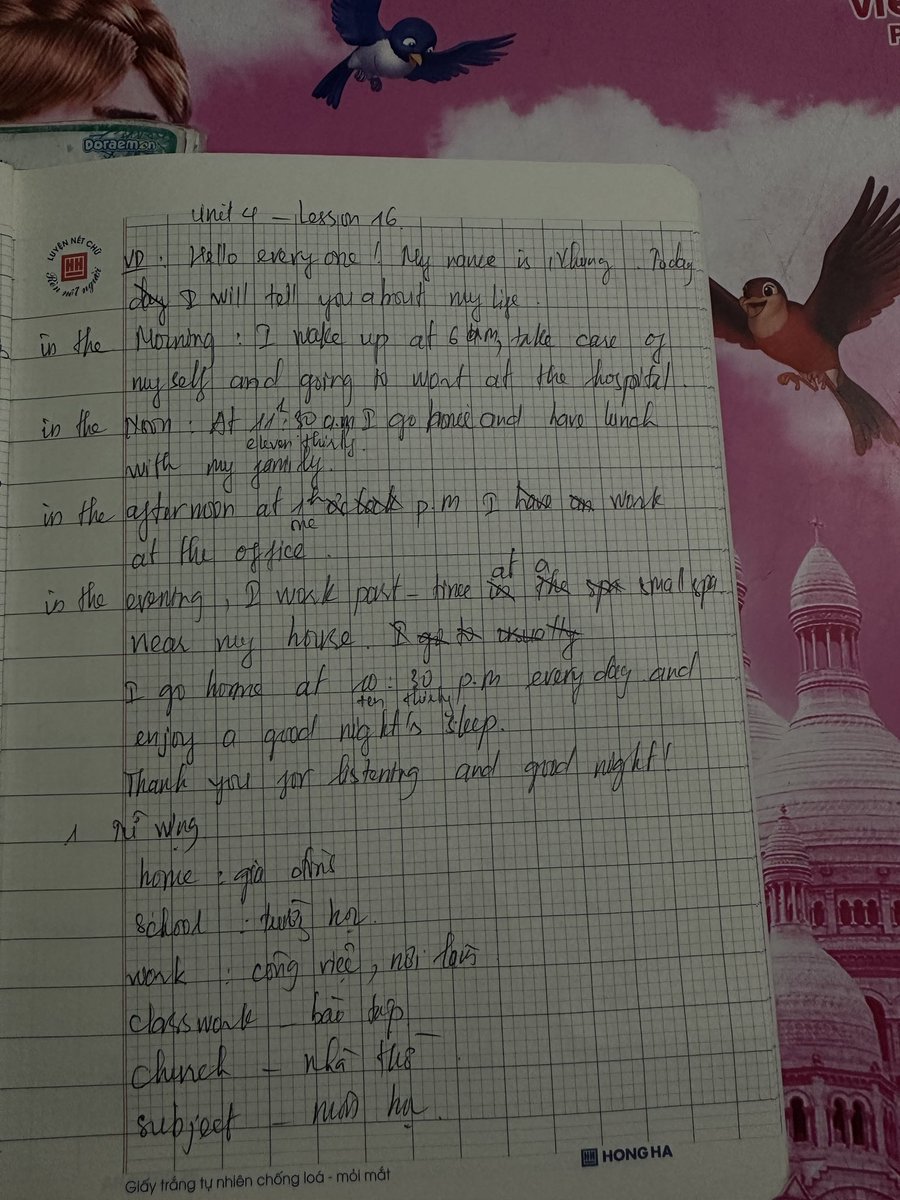 ViE
P
Doraemon
Unit 4 - Lession 16.
LUYỆN NÉT CHỮ
Rèn nết người
VD : Hello every one ! My name is Nhung . Today
day I will tell you about my life .
in the Morning : I wake up at 6 am, take care of
my self and going to work at the hospital.
in the Noon : At 11h:30 a.m I go home and have lunch
eleven thirty.
with my family.
in the afternoon at 1h o'clock p.m I have an work
one
at the office .
at a
in the evening , I work part - time in the spa small spa
near my house . I go to usually
I go home at 10 : 30 p.m every day and
ten thirty
enjoy a good night's sleep.
Thank you for listening and good night!
1 Từ vựng
home : gia đình
school : trường học.
work : công việc, nơi làm
classwork - bài tập
church - nhà thờ .
subject - môn học.
HONG HA
Giấy trắng tự nhiên chống loá - mỏi mắt